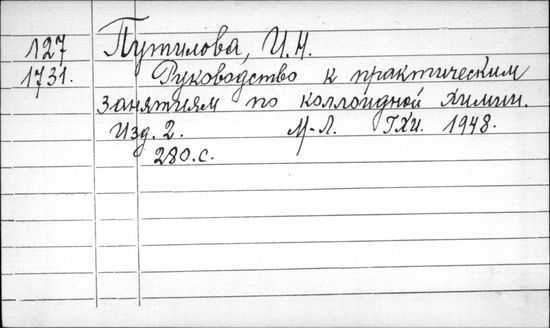 127 Путилова, И.Н.
1731. Руководство к практическим
занятиям по коллоидной химии.
Изд. 2. М-Л. ГХИ. 1948.
280.с.